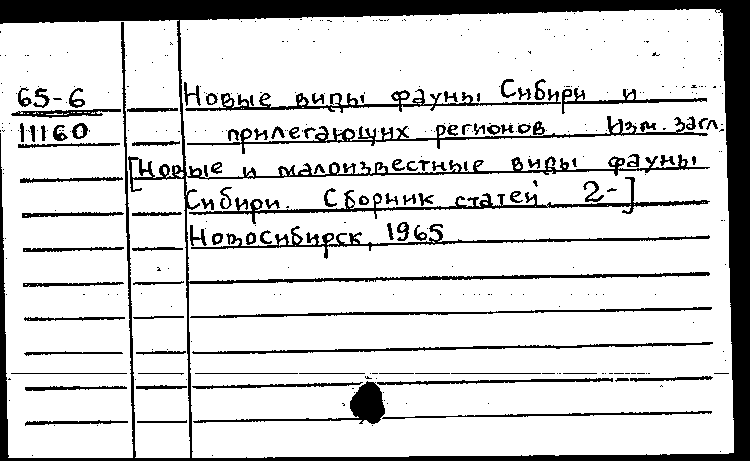 65-6
11160
Новые виды фауны Сибири и
прилегающих регионов. Изм. загл.
[Новые и малоизвестные виды фауны
Сибири. Сборник статей. 2-]
Новосибирск, 1965